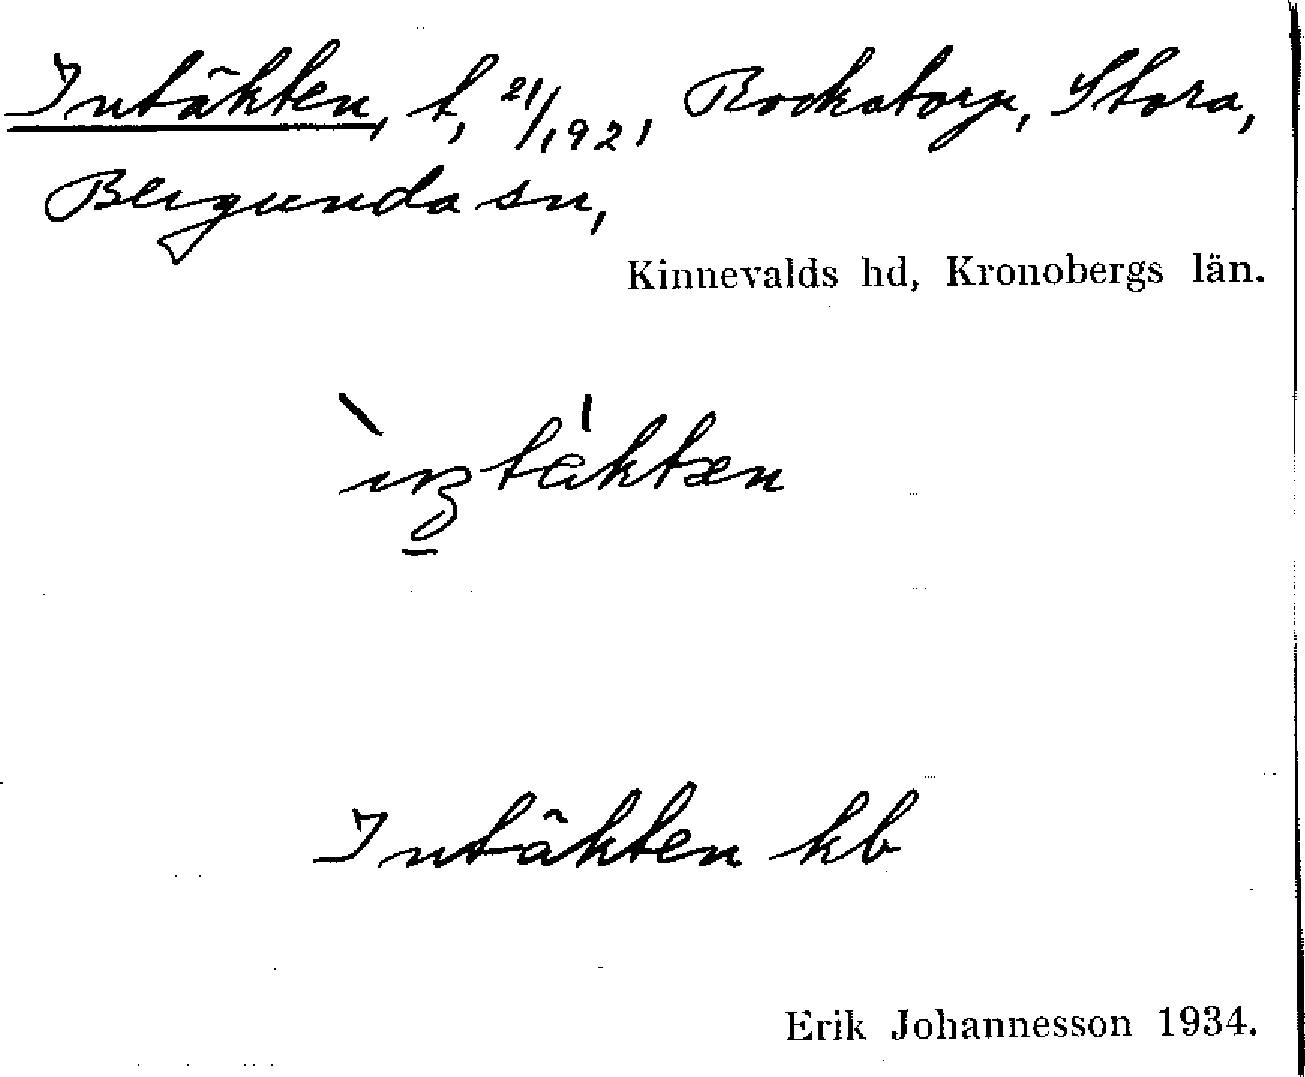 Intäkten, t, 21/1921, Rockatorp, Stora,
Bergunda sn,
Kinnevalds hd, Kronobergs län.
Intäkten kb
Erik Johannesson 1934.